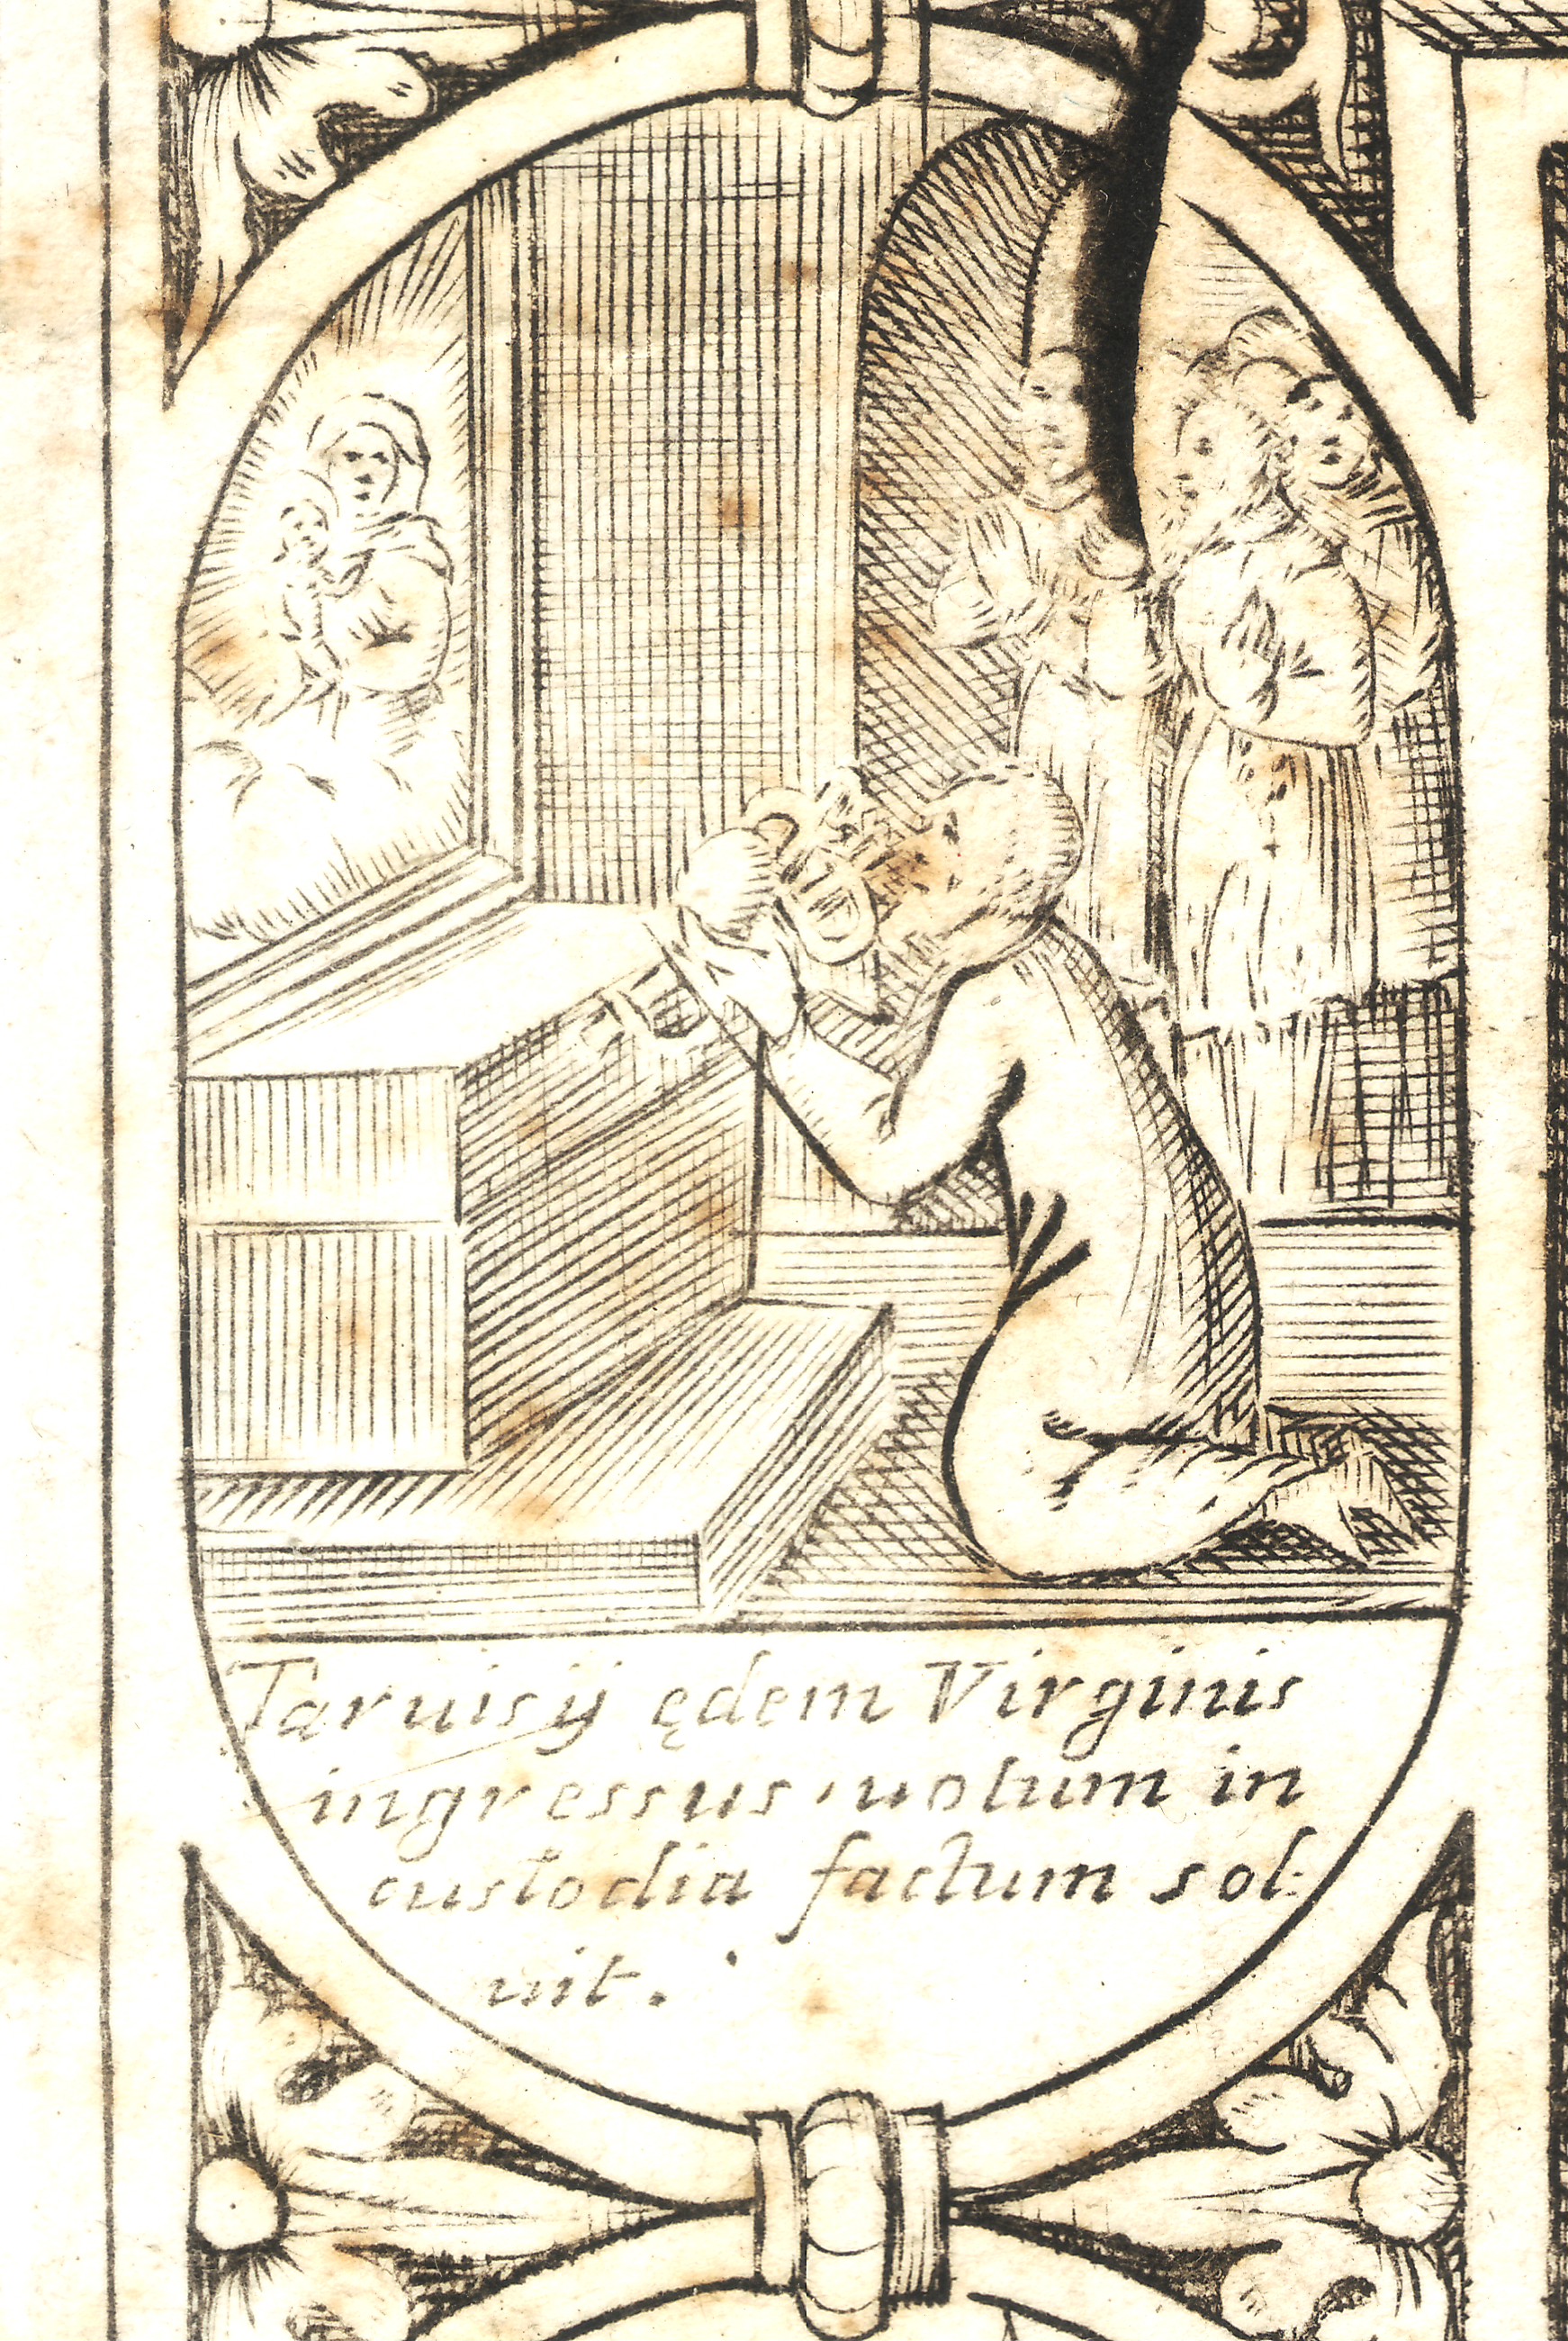 Taruisij ędem Virginis
ingressus, uotum in
custodia factum sol-
uit.